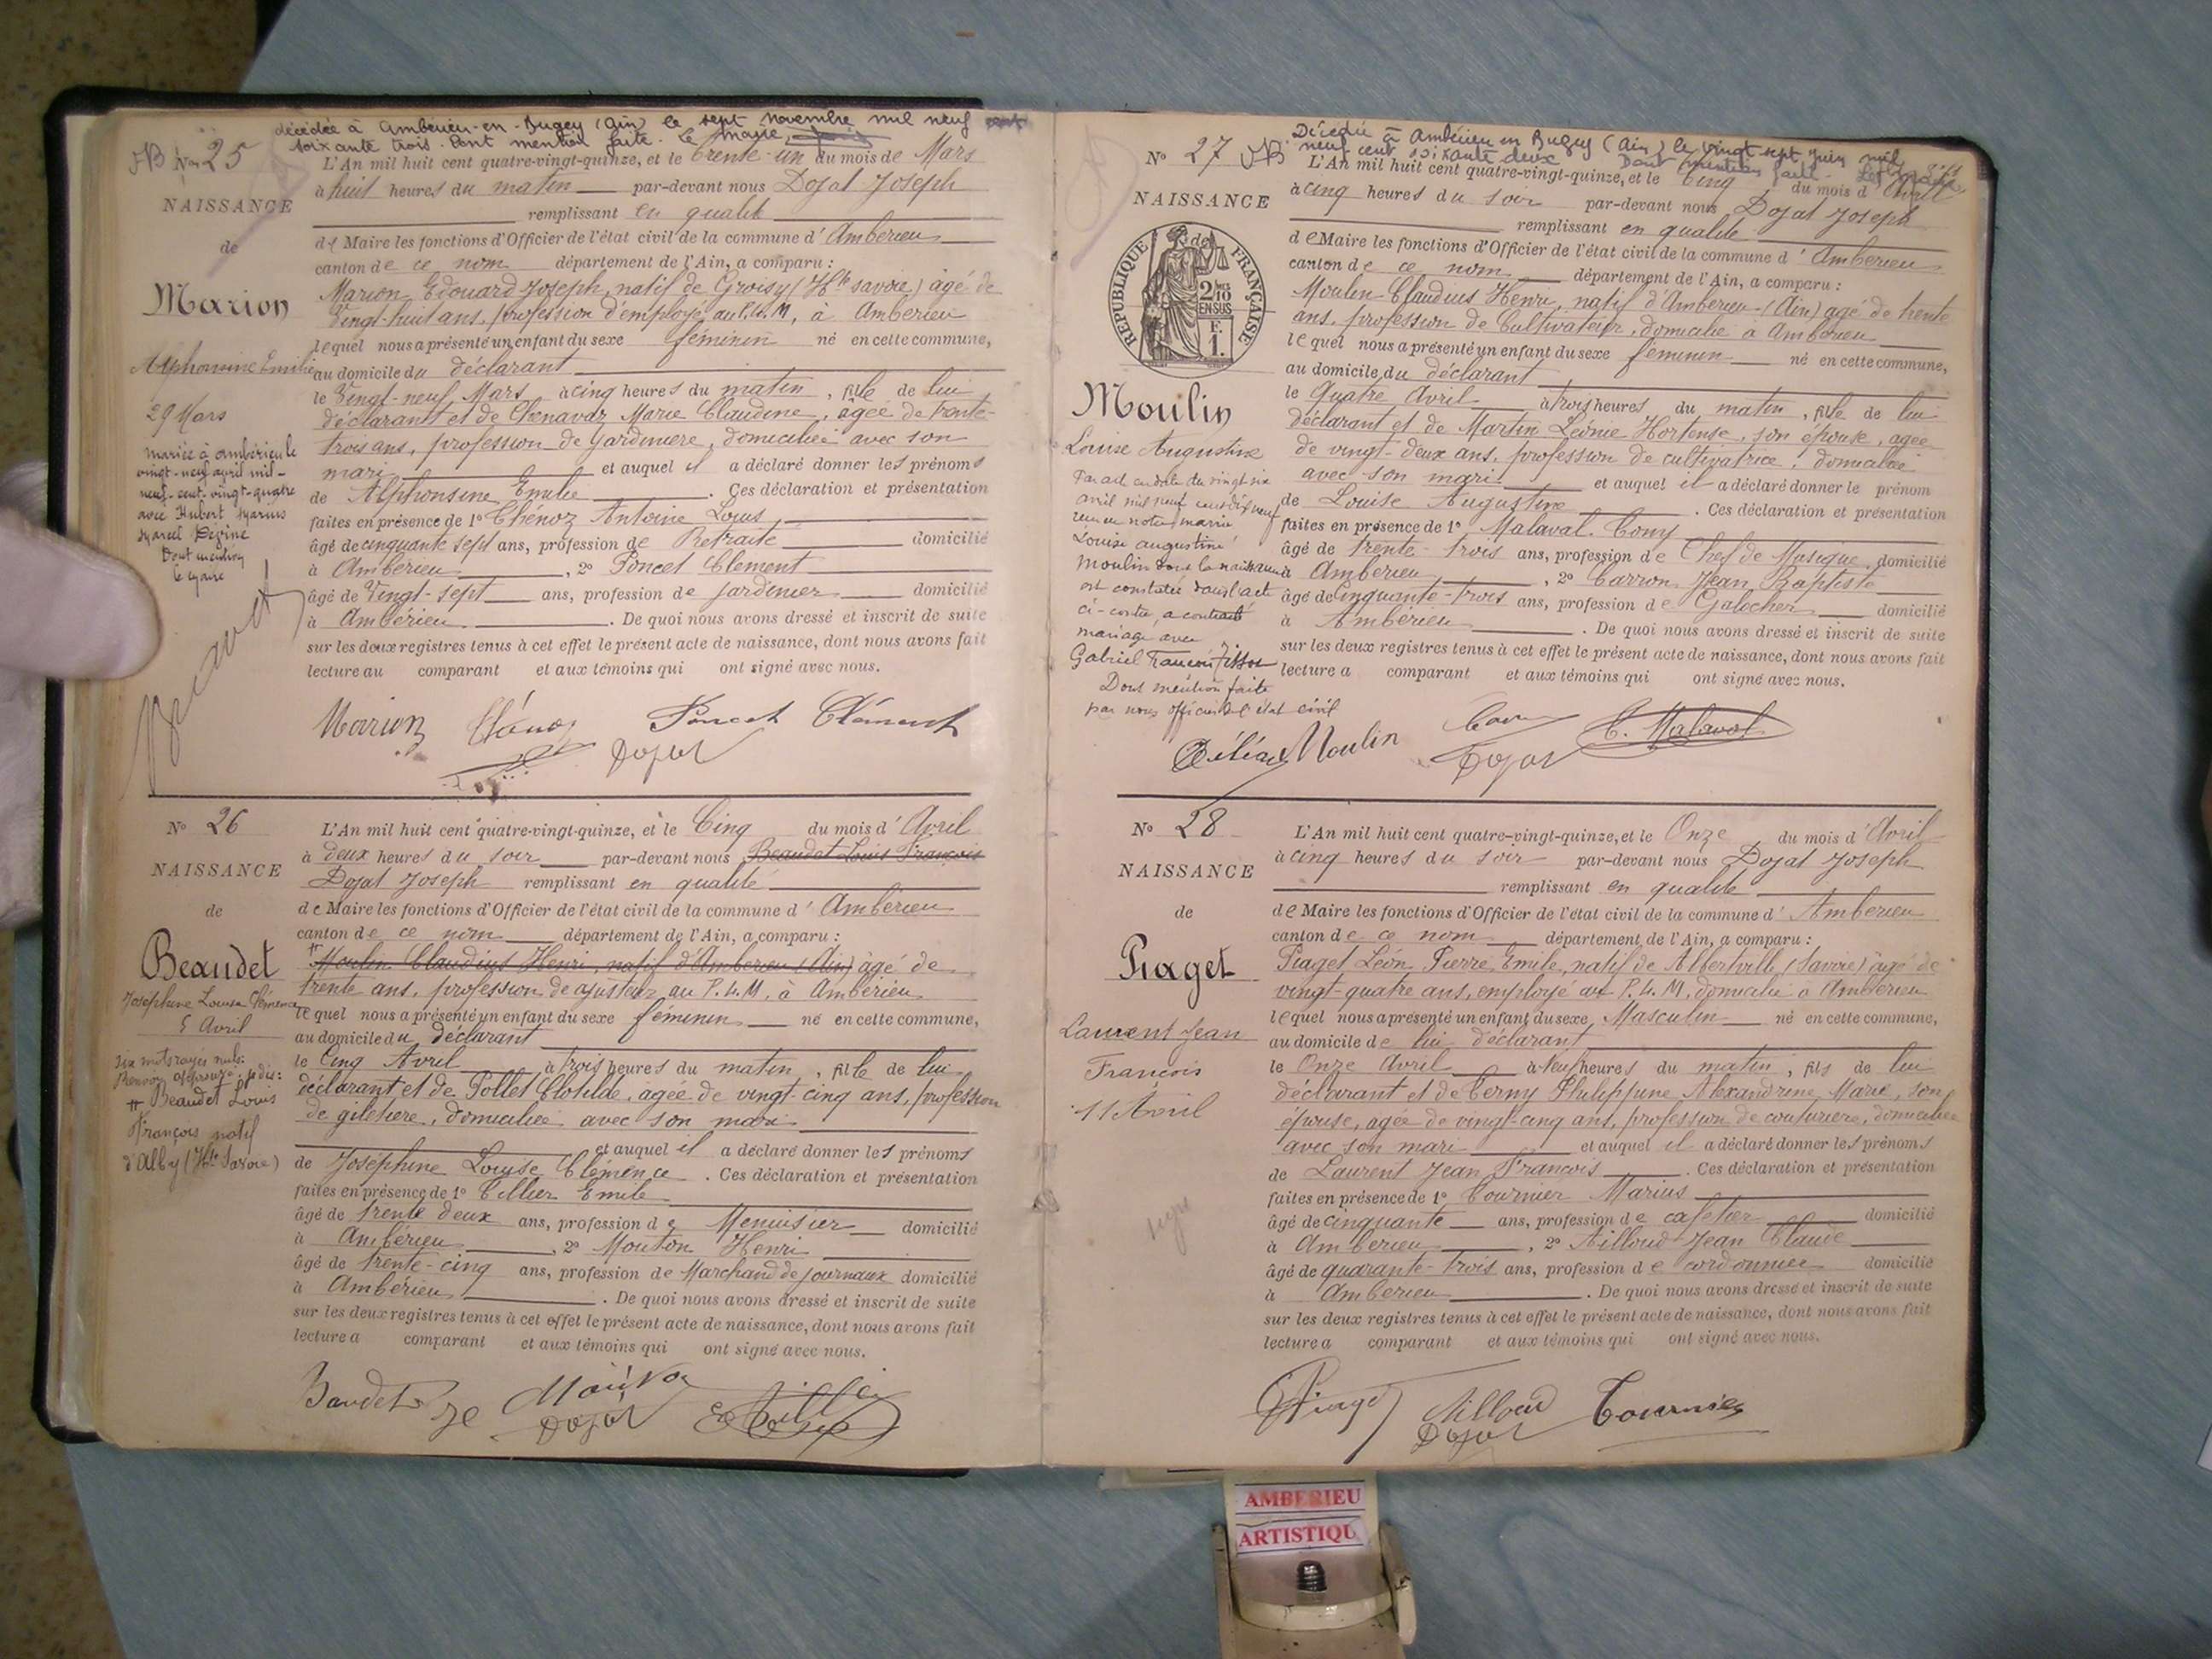 décédée à Ambérieu-en-Bugey (Ain) le sept novembre mil neuf cent
soixante trois. Dont mention faite. Le Maire,
No 25
L'An mil huit cent quatre-vingt-quinze, et le trente-un du mois de Mars
à huit heures du matin par-devant nous Dojat Joseph
NAISSANCE
remplissant en qualité
de
de Maire les fonctions d'Officier de l'état civil de la commune d' Ambérieu
canton de ce nom département de l'Ain, a comparu :
Marion
Marion Edouard Joseph, natif de Groisy (Hte Savoie) âgé de
vingt-huit ans, profession d'employé au P.L.M, à Ambérieu
lequel nous a présenté un enfant du sexe féminin né en cette commune,
Alphonsine Emilie
au domicile du déclarant
le vingt-neuf Mars à cinq heures du matin, fille de lui
29 Mars
déclarant et de Chenavaz Marie Claudine, agée de trente-
trois ans, profession de Jardinière, domiciliée avec son
mari et auquel il a déclaré donner les prénoms
de Alphonsine Emilie . Ces déclaration et présentation
mariée à Ambérieu le
vingt-neuf avril mil-
neuf-cent-vingt-quatre
avec Hubert Marius
Marcel
Dont mention
le Maire
faites en présence de 1° Chénoz Antoine Louis
âgé de cinquante sept ans, profession de Retraité domicilié
à Ambérieu, 2° Poncet Clément
âgé de vingt-sept ans, profession de Jardinier domicilié
à Ambérieu . De quoi nous avons dressé et inscrit de suite
sur les deux registres tenus à cet effet le présent acte de naissance, dont nous avons fait
lecture au comparant et aux témoins qui ont signé avec nous.
Marion Chénoz Poncet Clément
Dojat
No 26
L'An mil huit cent quatre-vingt-quinze, et le Cinq du mois d' Avril
à deux heures du soir par-devant nous Beaudet Louis François
NAISSANCE
Dojat Joseph remplissant en qualité
de
de Maire les fonctions d'Officier de l'état civil de la commune d' Ambérieu
canton de ce nom département de l'Ain, a comparu :
Beaudet
Moulin Claudius Henri, natif d'Ambérieu (Ain) âgé de
trente ans, profession de ajusteur au P.L.M, à Ambérieu
Joséphine Louise Clémence
5 Avril
lequel nous a présenté un enfant du sexe féminin né en cette commune,
au domicile du déclarant
le Cinq Avril à trois heures du matin, fille de lui
déclarant et de Pollet Clotilde, agée de vingt-cinq ans, profession
de giletière, domiciliée avec son mari
six mots rayés nuls.
Renvoi approuvé
Beaudet Louis
François natif
d'Alby (Hte Savoie)
et auquel il a déclaré donner les prénoms
de Joséphine Louise Clémence . Ces déclaration et présentation
faites en présence de 1° Cellier Emile
âgé de trente deux ans, profession de Menuisier domicilié
à Ambérieu, 2° Mouton Henri
âgé de trente-cinq ans, profession de Marchand de journaux domicilié
à Ambérieu . De quoi nous avons dressé et inscrit de suite
sur les deux registres tenus à cet effet le présent acte de naissance, dont nous avons fait
lecture a comparant et aux témoins qui ont signé avec nous.
Baudet Mouton
Dojat
Décédée à Ambérieu en Bugey (Ain) le vingt sept juin mil
neuf cent soixante deux Dont mention faite. Le Maire
No 27
L'An mil huit cent quatre-vingt-quinze, et le Cinq du mois d' Avril
à cinq heures du soir par-devant nous Dojat Joseph
NAISSANCE
remplissant en qualité
de
de Maire les fonctions d'Officier de l'état civil de la commune d' Ambérieu
canton de ce nom département de l'Ain, a comparu :
RÉPUBLIQUE FRANÇAISE
2/10
EN SUS
F.
1.
Moulin Claudius Henri, natif d'Ambérieu (Ain) agé de trente
ans, profession de Cultivateur, domicilié à Ambérieu
lequel nous a présenté un enfant du sexe féminin né en cette commune,
au domicile du déclarant
Moulin
le Quatre Avril à trois heures du matin, fille de lui
déclarant et de Martin Léonie Hortense, son épouse, agée
Louise Augustine
de vingt-deux ans, profession de cultivatrice, domiciliée
avec son mari et auquel il a déclaré donner le prénom
de Louise Augustine . Ces déclaration et présentation
Par act en date du vingt six
avril mil neuf cent dix neuf
reçu en notre mairie
Louise Augustine
Moulin dont la naissance
est constatée dans l'acte
ci-contre, a contracté
mariage avec
Gabriel François Tissot
Dont mention faite
par nous officier de l'état civil
faites en présence de 1° Malaval Comy
âgé de trente-trois ans, profession de Chef de Musique, domicilié
à Ambérieu, 2° Carron Jean Baptiste
âgé de cinquante-trois ans, profession de Galocher domicilié
à Ambérieu . De quoi nous avons dressé et inscrit de suite
sur les deux registres tenus à cet effet le présent acte de naissance, dont nous avons fait
lecture a comparant et aux témoins qui ont signé avec nous.
Moulin C. Malaval
Dojat
No 28
L'An mil huit cent quatre-vingt-quinze, et le Onze du mois d' Avril
à cinq heures du soir par-devant nous Dojat Joseph
NAISSANCE
remplissant en qualité
de
de Maire les fonctions d'Officier de l'état civil de la commune d' Ambérieu
canton de ce nom département de l'Ain, a comparu :
Piaget
Piaget Léon Pierre Emile, natif de Albertville (Savoie) âgé de
vingt-quatre ans, employé au P.L.M, domicilié à Ambérieu
lequel nous a présenté un enfant du sexe Masculin né en cette commune,
Laurent Jean
François
11 Avril
au domicile de lui déclarant
le Onze Avril à Neuf heures du matin, fils de lui
déclarant et de Cerny Philippine Alexandrine Marie, son
épouse, agée de vingt-cinq ans, profession de couturière, domiciliée
avec son mari et auquel il a déclaré donner les prénoms
de Laurent Jean François . Ces déclaration et présentation
faites en présence de 1° Tournier Marius
âgé de cinquante ans, profession de cafetier domicilié
à Ambérieu, 2° Ailloud Jean Claude
âgé de quarante-trois ans, profession de cordonnier domicilié
à Ambérieu . De quoi nous avons dressé et inscrit de suite
sur les deux registres tenus à cet effet le présent acte de naissance, dont nous avons fait
lecture a comparant et aux témoins qui ont signé avec nous.
Piaget Ailloud Tournier
Dojat
AMBERIEU
ARTISTIQU